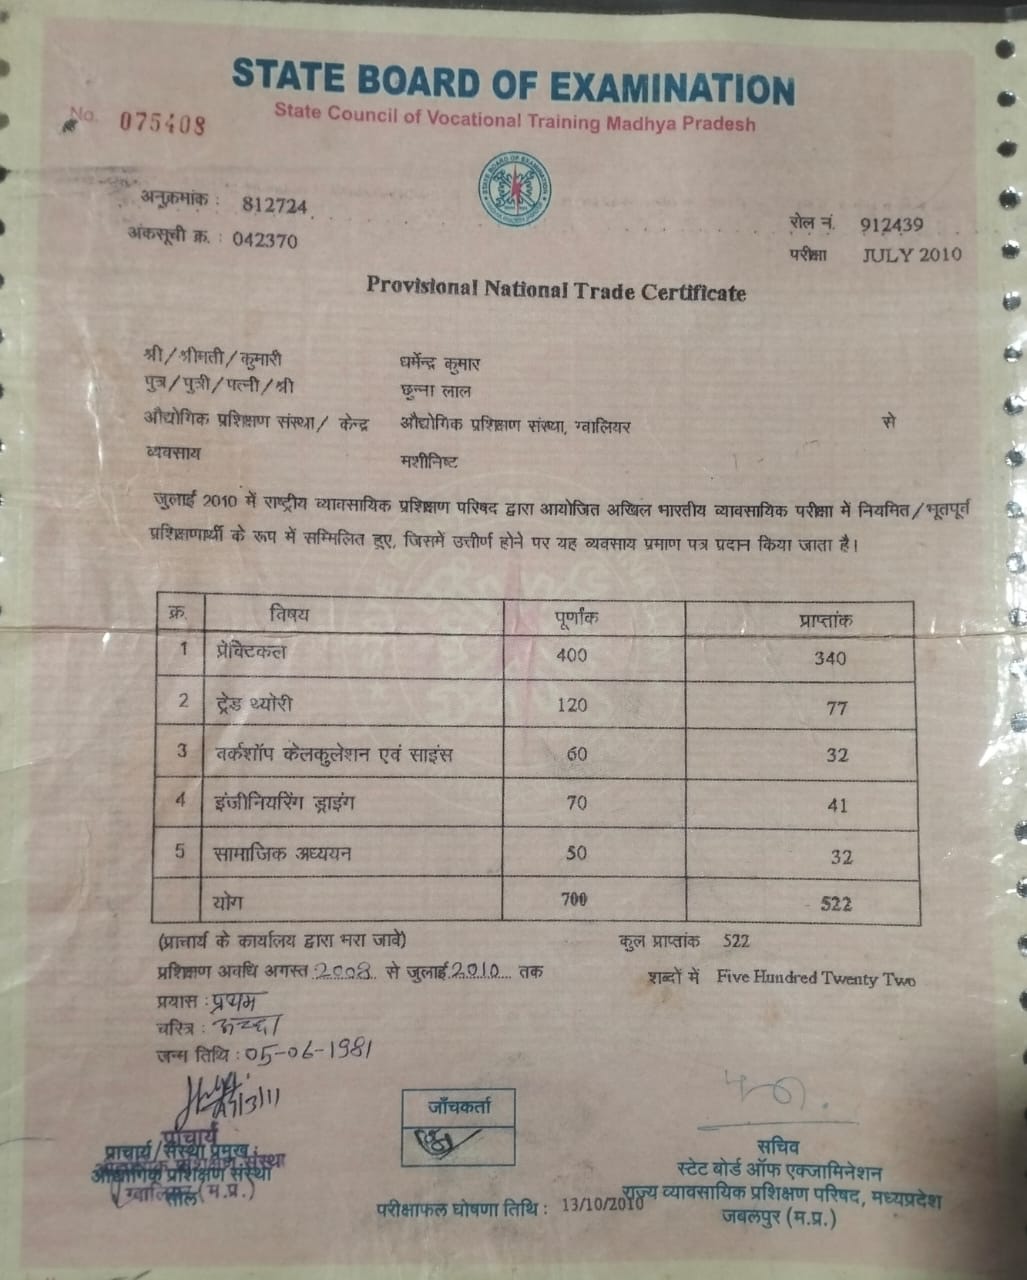 STATE BOARD OF EXAMINATION
State Council of Vocational Training Madhya Pradesh
No. 075408
अनुक्रमांक : 812724
अंकसूची क्र. : 042370
रोल नं. 912439
परीक्षा JULY 2010
Provisional National Trade Certificate
श्री/श्रीमती/कुमारी धर्मेन्द्र कुमार
पुत्र/पुत्री/पत्नी/श्री छुन्ना लाल
औद्योगिक प्रशिक्षण संस्था/ केन्द्र औद्योगिक प्रशिक्षण संस्था, ग्वालियर से
व्यवसाय मशीनिष्ट
जुलाई 2010 में राष्ट्रीय व्यावसायिक प्रशिक्षण परिषद द्वारा आयोजित अखिल भारतीय व्यावसायिक परीक्षा में नियमित/भूतपूर्व
प्रशिक्षणार्थी के रूप में सम्मिलित हुए, जिसमें उत्तीर्ण होने पर यह व्यवसाय प्रमाण पत्र प्रदान किया जाता है।
क्र. विषय पूर्णांक प्राप्तांक
1 प्रेक्टिकल 400 340
2 ट्रेड थ्योरी 120 77
3 वर्कशॉप केलकुलेशन एवं साइंस 60 32
4 इंजीनियरिंग ड्राइंग 70 41
5 सामाजिक अध्ययन 50 32
योग 700 522
(प्राचार्य के कार्यालय द्वारा भरा जावे) कुल प्राप्तांक 522
प्रशिक्षण अवधि अगस्त 2008 से जुलाई 2010 तक
शब्दों में Five Hundred Twenty Two
प्रयास : प्रथम
चरित्र : अच्छा
जन्म तिथि : 05-06-1981
प्राचार्य
प्राचार्य/संस्था प्रमुख
औद्योगिक प्रशिक्षण संस्था
ग्वालियर (म.प्र.)
सील
जाँचकर्ता
सचिव
स्टेट बोर्ड ऑफ एक्जामिनेशन
राज्य व्यावसायिक प्रशिक्षण परिषद, मध्यप्रदेश
जबलपुर (म.प्र.)
परीक्षाफल घोषणा तिथि : 13/10/2010